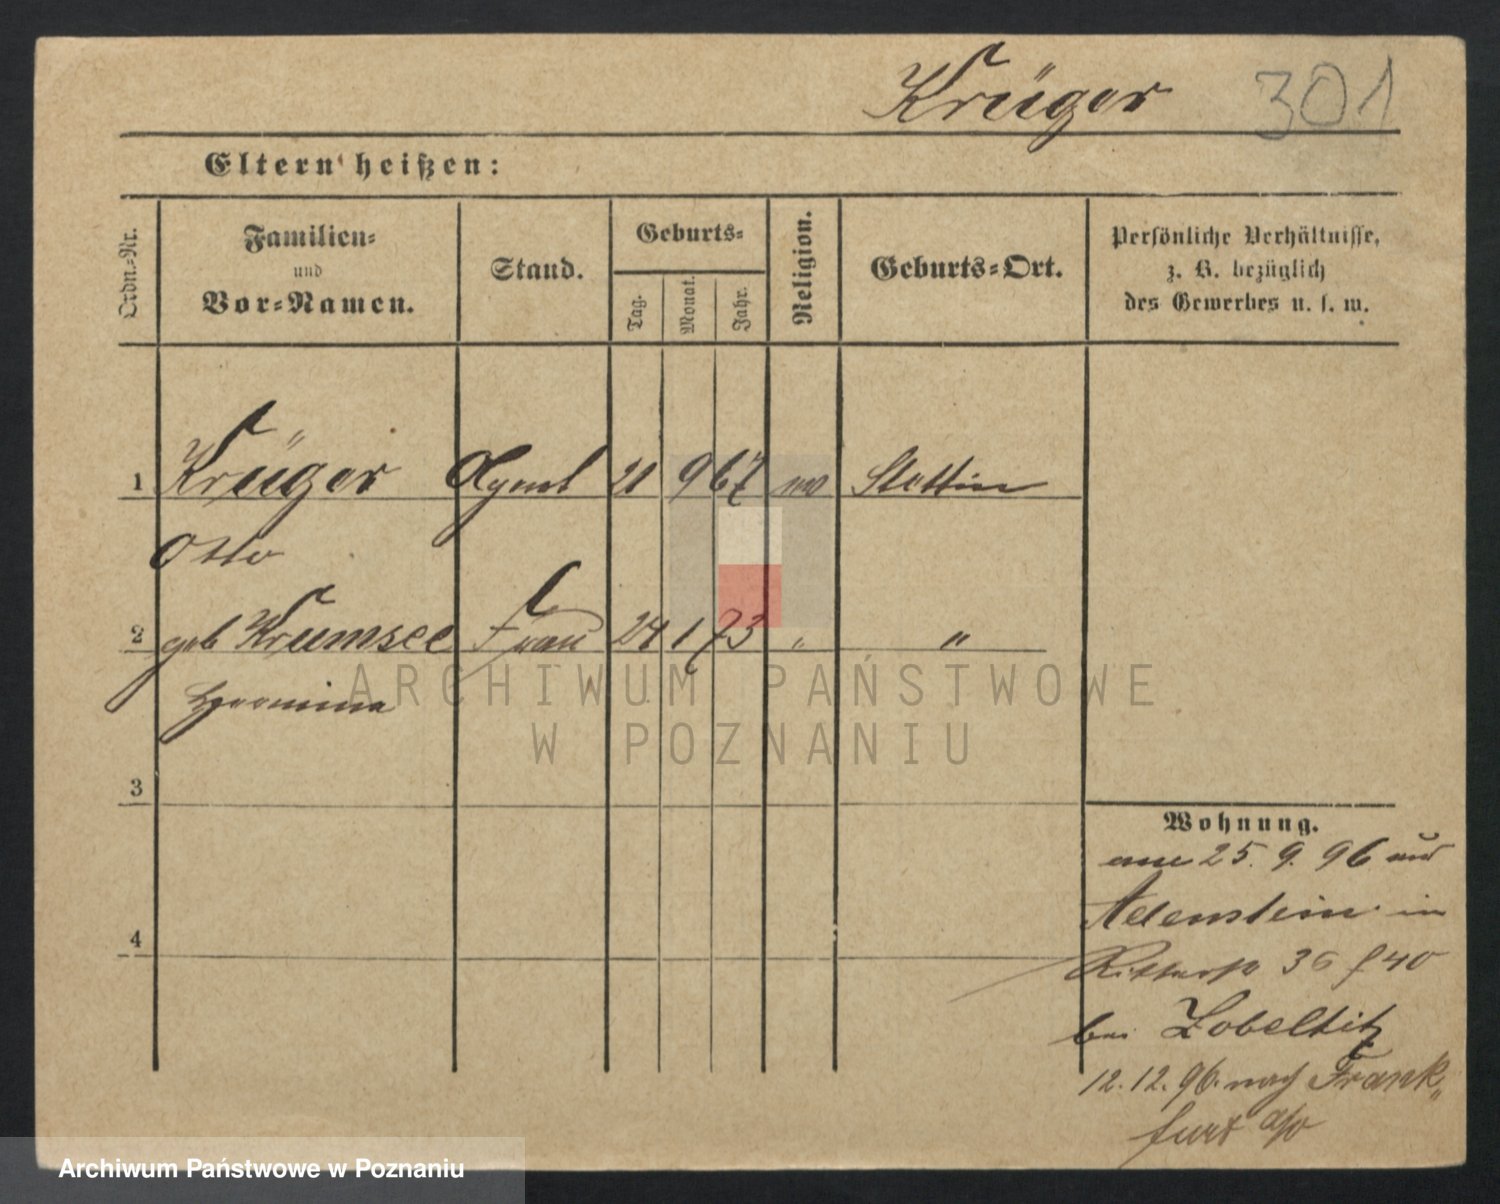 Krüger 301
Eltern heißen:
Ordn.-Nr.
Familien-
und
Vor-Namen.
Stand.
Geburts-
Tag.
Monat.
Jahr.
Religion.
Geburts-Ort.
Persönliche Verhältnisse,
z. B. bezüglich
des Gewerbes u. s. w.
1 Krüger Agent 21 9 67 ev Stettin
Otto
2 geb Krumsee Frau 24 1 73 " "
Hermina
3
4
Wohnung.
25. 9. 96
in
Ritterstr 36
bei Zobeltitz
12. 12. 96. nach Frank-
furt a/o
ARCHIWUM PAŃSTWOWE
W POZNANIU
Archiwum Państwowe w Poznaniu